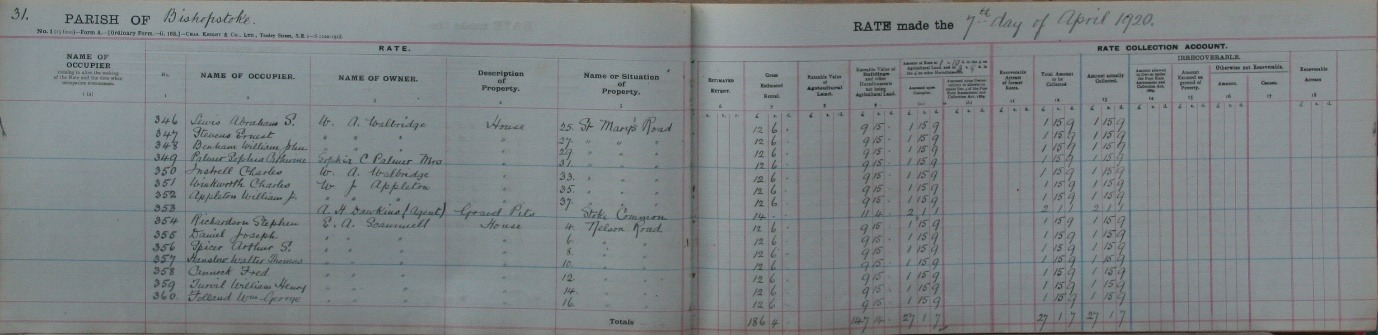 31.
PARISH OF Bishopstoke.
RATE made the 7th day of April 1920.
RATE.
RATE COLLECTION ACCOUNT.
IRRECOVERABLE.
NAME OF OCCUPIER
No.
NAME OF OCCUPIER.
NAME OF OWNER.
Description of Property.
Name or Situation of Property.
Gross Estimated Rental.
Rateable Value of Agricultural Land.
Total Amount to be Collected
Amount actually Collected.
346 Lewis Abraham S. W. A. Walbridge House 25. St Mary's Road 12 6 . 9 15 . 1 15 9 1 15 9 1 15 9
347 Stevens Ernest " " " " 27. " " 12 6 . 9 15 . 1 15 9 1 15 9 1 15 9
348 Benham William John " " " " 29 " " 12 6 . 9 15 . 1 15 9 1 15 9 1 15 9
349 Palmer Sophia Catherine Sophia C Palmer Mrs " 31. " " 12 6 . 9 15 . 1 15 9 1 15 9 1 15 9
350 Charles W. A. Walbridge " 33. " " 12 6 . 9 15 . 1 15 9 1 15 9 1 15 9
351 Winkworth Charles W. J. Appleton " 35. " " 12 6 . 9 15 . 1 15 9 1 15 9 1 15 9
352 Appleton William J. " " " " 37. " " 12 6 . 9 15 . 1 15 9 1 15 9 1 15 9
353 A. H. Dawkins (Agent) Gravel Pits Stoke Common 14 . . 11 4 . 2 1 1 2 1 1 2 1 1
354 Richardson Stephen E. A. Scammell House 4. Nelson Road 12 6 . 9 15 . 1 15 9 1 15 9 1 15 9
355 Daniel Joseph " " " " 6. " " 12 6 . 9 15 . 1 15 9 1 15 9 1 15 9
356 Spicer Arthur S. " " " " 8. " " 12 6 . 9 15 . 1 15 9 1 15 9 1 15 9
357 Hanslow Walter Thomas " " " " 10. " " 12 6 . 9 15 . 1 15 9 1 15 9 1 15 9
358 Fred " " " " 12. " " 12 6 . 9 15 . 1 15 9 1 15 9 1 15 9
359 Turvil William Henry " " " " 14. " " 12 6 . 9 15 . 1 15 9 1 15 9 1 15 9
360. Wm George " " " " 16. " " 12 6 . 9 15 . 1 15 9 1 15 9 1 15 9
Totals 186 4 . 147 14 . 27 1 7 27 1 7 27 1 7